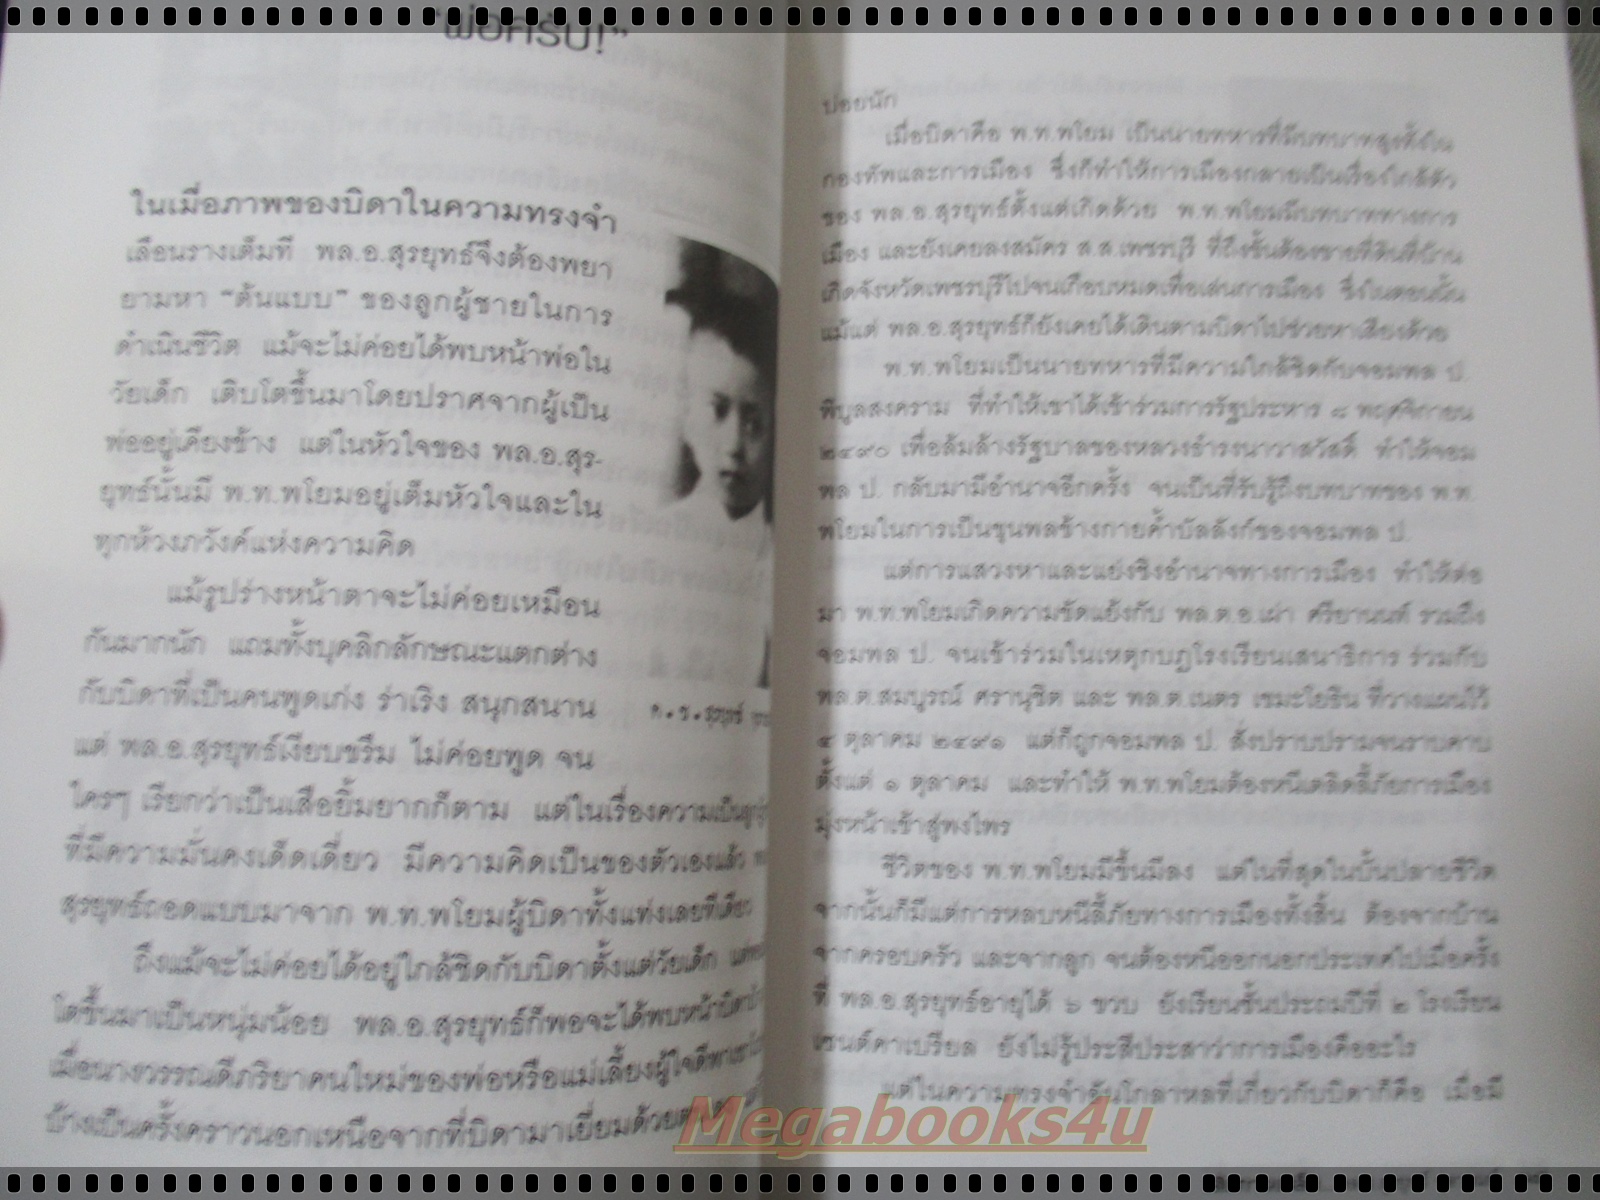 "พ่อครับ!"
ในเมื่อภาพของบิดาในความทรงจำ
เลือนรางเต็มที พล.อ.สุรยุทธ์จึงต้องพยา
ยามหา "ต้นแบบ" ของลูกผู้ชายในการ
ดำเนินชีวิต แม้จะไม่ค่อยได้พบหน้าพ่อใน
วัยเด็ก เติบโตขึ้นมาโดยปราศจากผู้เป็น
พ่ออยู่เคียงข้าง แต่ในหัวใจของ พล.อ.สุร-
ยุทธ์นั้นมี พ.ท.พโยมอยู่เต็มหัวใจและใน
ทุกห้วงภวังค์แห่งความคิด
แม้รูปร่างหน้าตาจะไม่ค่อยเหมือน
กันมากนัก แถมทั้งบุคลิกลักษณะแตกต่าง
กับบิดาที่เป็นคนพูดเก่ง ร่าเริง สนุกสนาน
แต่ พล.อ.สุรยุทธ์เงียบขรึม ไม่ค่อยพูด จน
ใครๆ เรียกว่าเป็นเสือยิ้มยากก็ตาม แต่ในเรื่องความเป็น
ที่มีความมั่นคงเด็ดเดี่ยว มีความคิดเป็นของตัวเองแล้ว
สุรยุทธ์ถอดแบบมาจาก พ.ท.พโยมผู้บิดาทั้งแท่งเลยทีเดียว
ถึงแม้จะไม่ค่อยได้อยู่ใกล้ชิดกับบิดาตั้งแต่วัยเด็ก
โตขึ้นมาเป็นหนุ่มน้อย พล.อ.สุรยุทธ์ก็พอจะได้พบหน้าบิดา
เมื่อนางวรรณดีภริยาคนใหม่ของพ่อหรือแม่เลี้ยงผู้ใจดี
บ้างเป็นครั้งคราวนอกเหนือจากที่บิดามาเยี่ยมด้วย
ด.ช.สุรยุทธ์
บ่อยนัก
เมื่อบิดาคือ พ.ท.พโยม เป็นนายทหารที่มีบทบาทสูงทั้งใน
กองทัพและการเมือง ซึ่งก็ทำให้การเมืองกลายเป็นเรื่องใกล้ตัว
ของ พล.อ.สุรยุทธ์ตั้งแต่เกิดด้วย พ.ท.พโยมมีบทบาททางการ
เมือง และยังเคยลงสมัคร ส.ส.เพชรบุรี ที่ถึงขั้นต้องขายที่ดินที่บ้าน
เกิดจังหวัดเพชรบุรีไปจนเกือบหมดเพื่อเล่นการเมือง ซึ่งในตอนนั้น
แม้แต่ พล.อ.สุรยุทธ์ก็ยังเคยได้เดินตามบิดาไปช่วยหาเสียงด้วย
พ.ท.พโยมเป็นนายทหารที่มีความใกล้ชิดกับจอมพล ป.
พิบูลสงคราม ที่ทำให้เขาได้เข้าร่วมการรัฐประหาร ๘ พฤศจิกายน
๒๔๙๐ เพื่อล้มล้างรัฐบาลของหลวงธำรงนาวาสวัสดิ์ ทำให้จอม
พล ป. กลับมามีอำนาจอีกครั้ง จนเป็นที่รับรู้ถึงบทบาทของ พ.ท.
พโยมในการเป็นขุนพลข้างกายค้ำบัลลังก์ของจอมพล ป.
แต่การแสวงหาและแย่งชิงอำนาจทางการเมือง ทำให้ต่อ
มา พ.ท.พโยมเกิดความขัดแย้งกับ พล.ต.อ.เผ่า ศรียานนท์ รวมถึง
จอมพล ป. จนเข้าร่วมในเหตุกบฏโรงเรียนเสนาธิการ ร่วมกับ
พล.ต.สมบูรณ์ ศรานุชิต และ พล.ต.เนตร เขมะโยธิน ที่วางแผนไว้
๔ ตุลาคม ๒๔๙๑ แต่ก็ถูกจอมพล ป. สั่งปราบปรามจนราบคาบ
ตั้งแต่ ๑ ตุลาคม และทำให้ พ.ท.พโยมต้องหนีเตลิดลี้ภัยการเมือง
มุ่งหน้าเข้าสู่พงไพร
ชีวิตของ พ.ท.พโยมมีขึ้นมีลง แต่ในที่สุดในบั้นปลายชีวิต
จากนั้นก็มีแต่การหลบหนีลี้ภัยทางการเมืองทั้งสิ้น ต้องจากบ้าน
จากครอบครัว และจากลูก จนต้องหนีออกนอกประเทศไปเมื่อครั้ง
ที่ พล.อ.สุรยุทธ์อายุได้ ๖ ขวบ ยังเรียนชั้นประถมปีที่ ๒ โรงเรียน
เซนต์คาเบรียล ยังไม่รู้ประสีประสาว่าการเมืองคืออะไร
แต่ในความทรงจำอันโกลาหลที่เกี่ยวกับบิดาก็คือ เมื่อมี
Megabooks4u